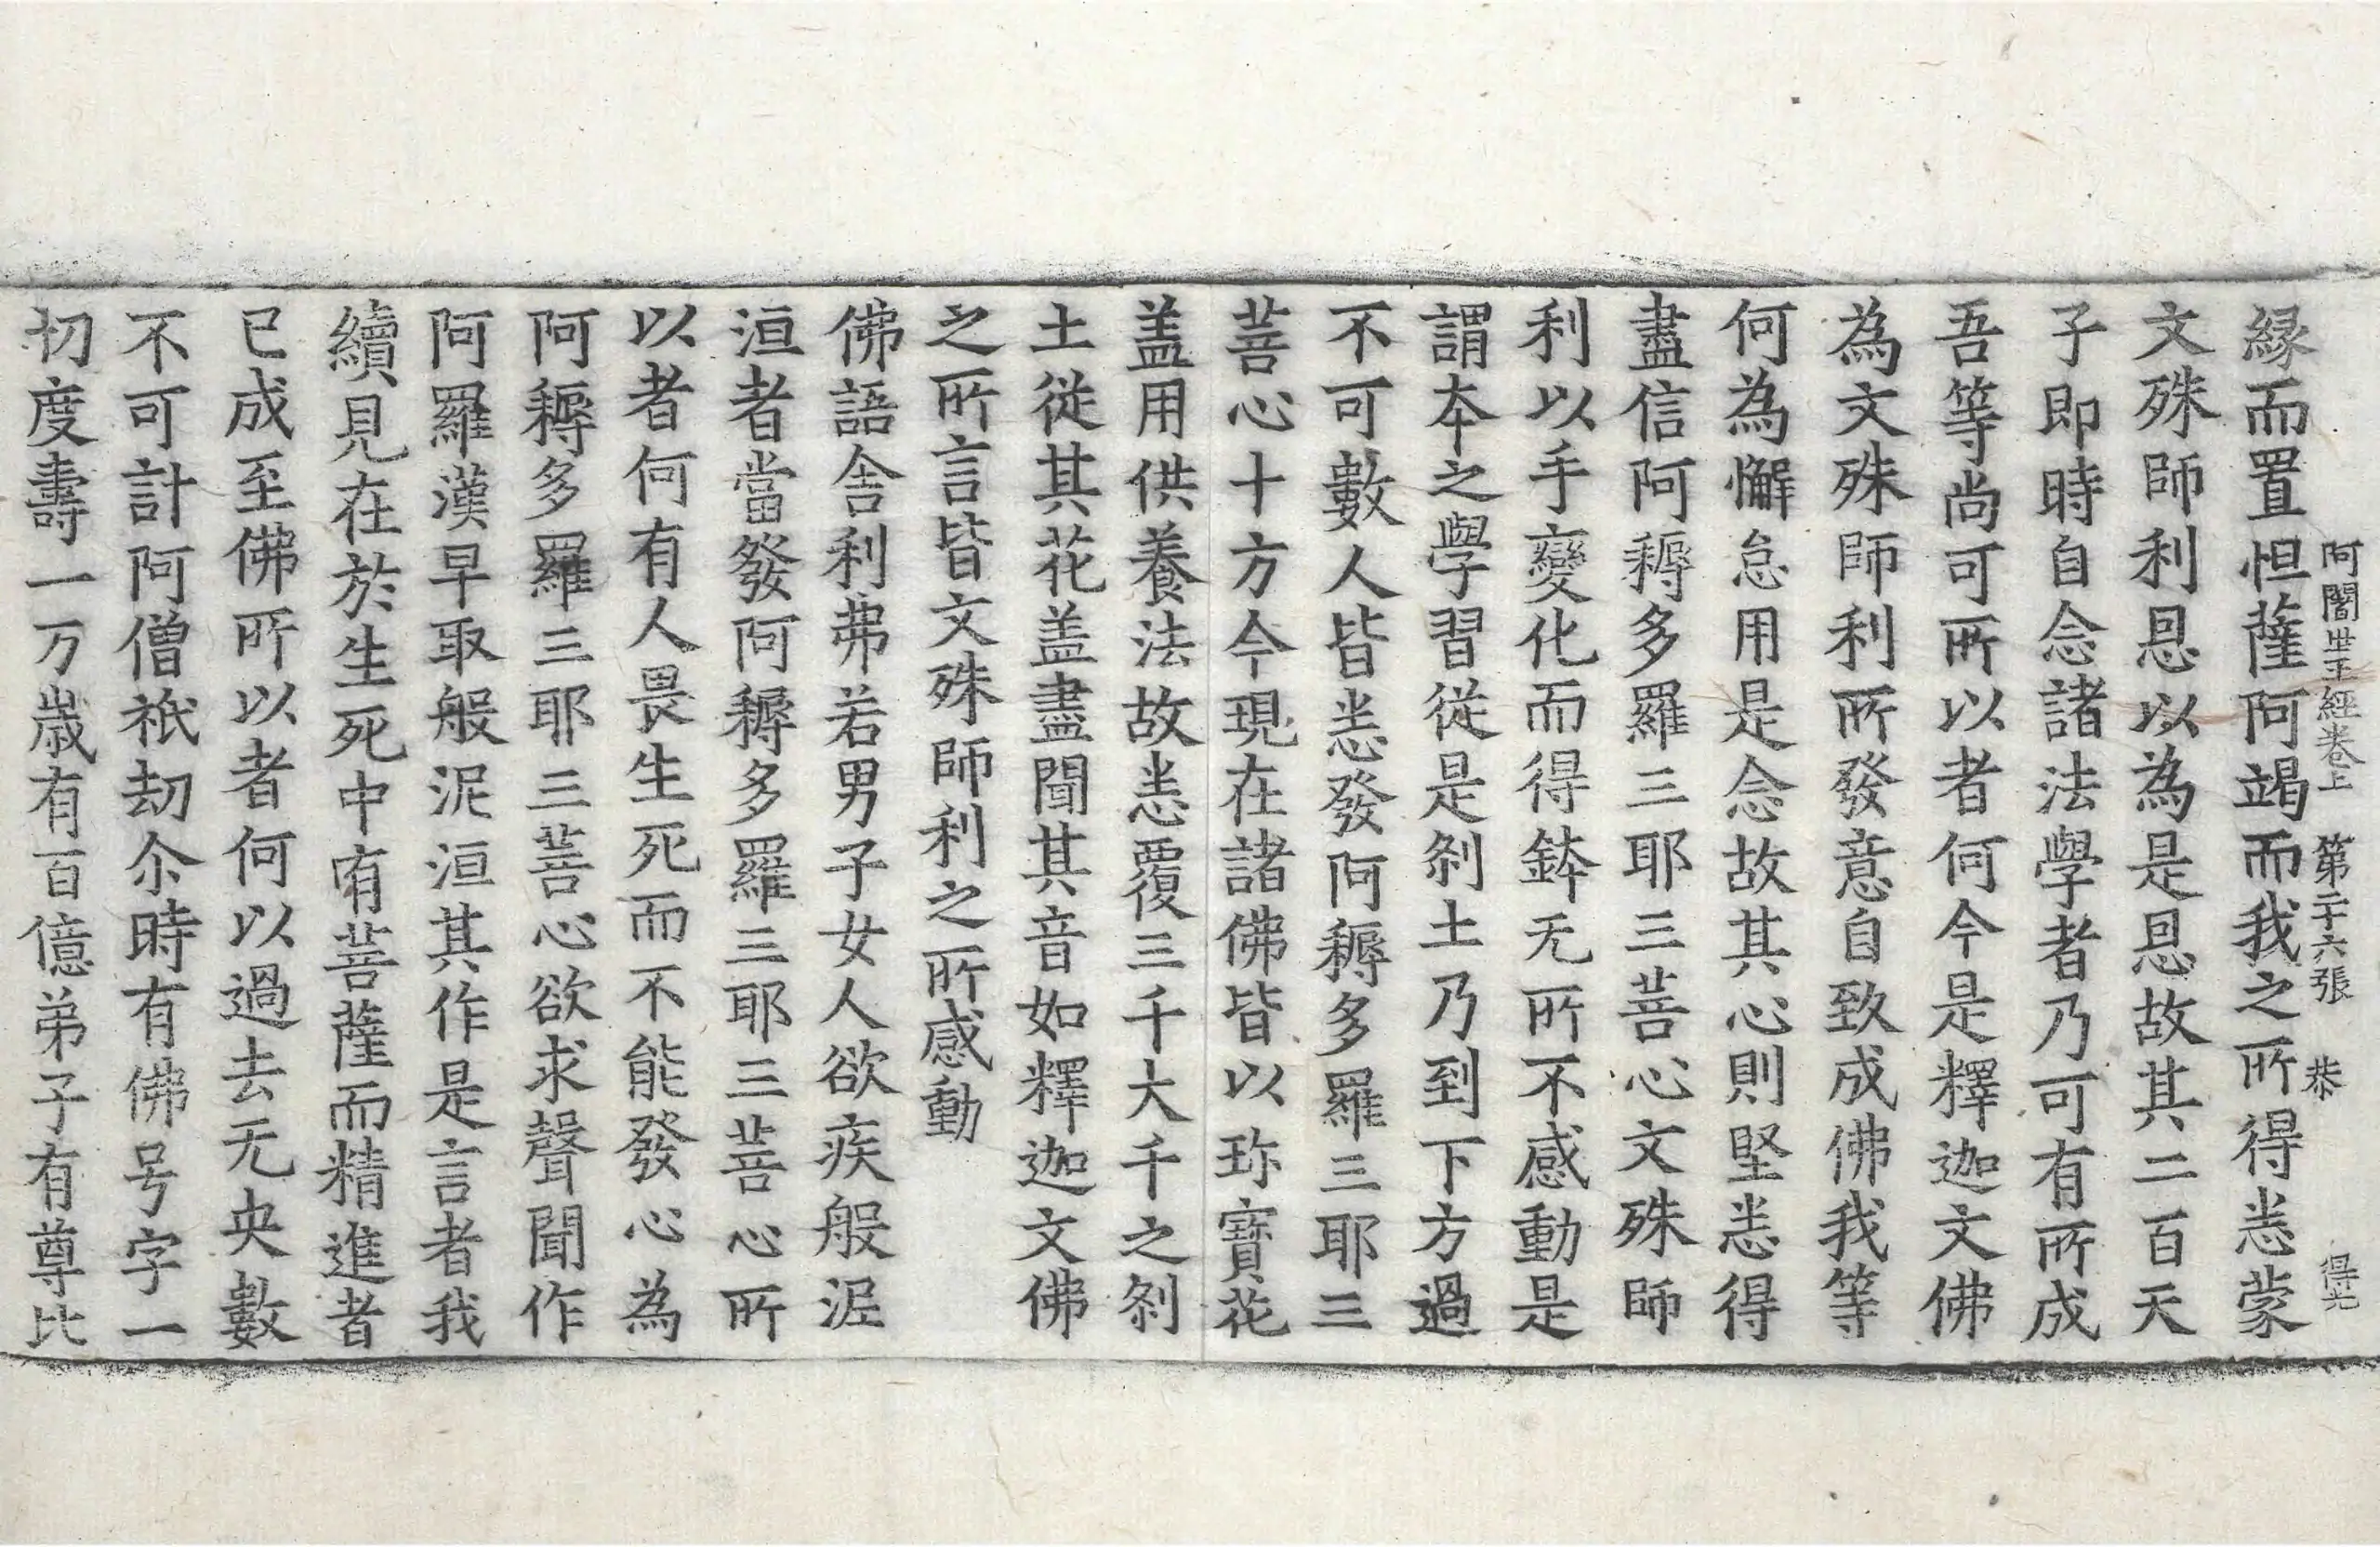 阿闍世王經卷上　第二十六張　恭　得光
緣而置怛薩阿竭而我之所得悉蒙
文殊師利恩以為是恩故其二百天
子即時自念諸法學者乃可有所成
吾等尚可所以者何今是釋迦文佛
為文殊師利所發意自致成佛我等
何為懈怠用是念故其心則堅悉得
盡信阿耨多羅三耶三菩心文殊師
利以手變化而得鉢无所不感動是
謂本之學習從是刹土乃到下方過
不可數人皆悉發阿耨多羅三耶三
菩心十方今現在諸佛皆以珎寶花
盖用供養法故悉覆三千大千之刹
土從其花盖盡聞其音如釋迦文佛
之所言皆文殊師利之所感動
佛語舍利弗若男子女人欲疾般泥
洹者當發阿耨多羅三耶三菩心所
以者何有人畏生死而不能發心為
阿耨多羅三耶三菩心欲求聲聞作
阿羅漢早取般泥洹其作是言者我
續見在於生死中有菩薩而精進者
已成至佛所以者何以過去无央數
不可計阿僧祇劫尒時有佛号字一
切度壽一万歲有百億弟子有尊比